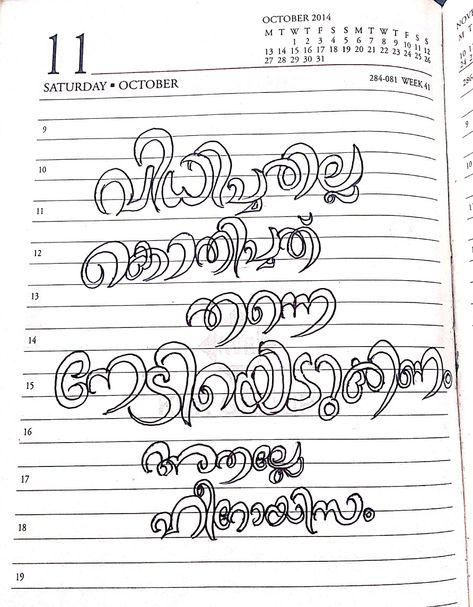 OCTOBER 2014
M T W T F S S M T W T F S S
1 2 3 4 5 6 7 8 9 10 11 12
13 14 15 16 17 18 19 20 21 22 23 24 25 26
27 28 29 30 31
11
SATURDAY ▪ OCTOBER
284-081 WEEK 41
9
10
വിധിച്ചതില്ല
11
12
കൊതിച്ചത്
13
തന്നെ
14
15
നേടിയെടുക്കണം
16
അതല്ലേ
17
ഹീറോയിസം
18
19